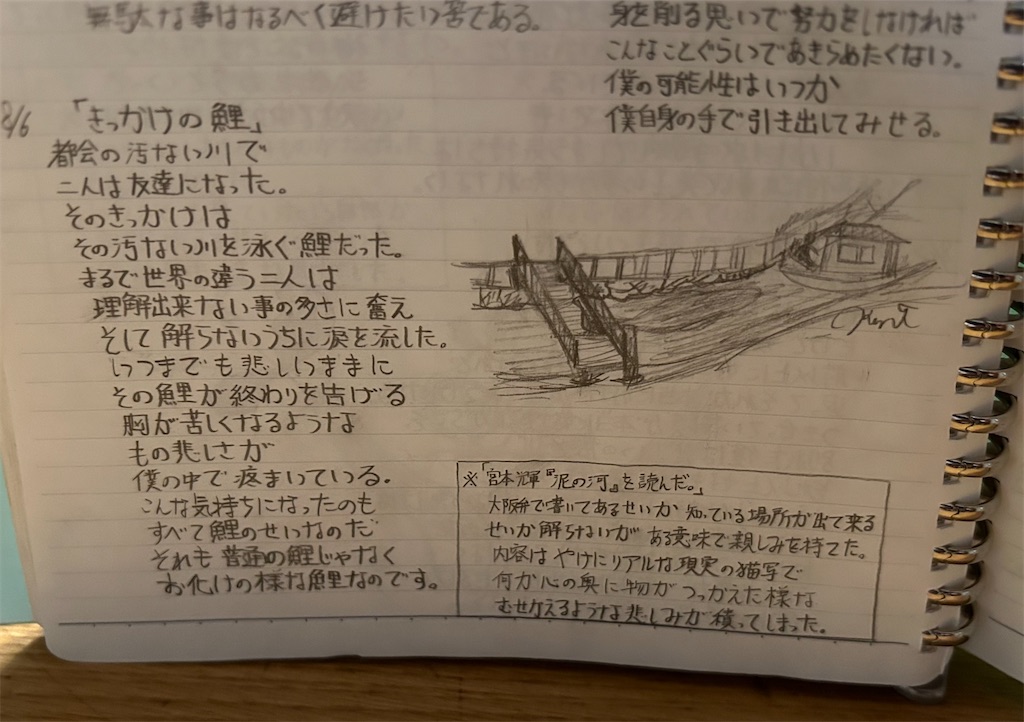 無駄な事はなるべく避けたい客である。
身を削る思いで努力をしなければ
こんなことぐらいであきらめたくない。
僕の可能性はいつか
僕自身の手で引き出してみせる。
8/6 「きっかけの鯉」
都会の汚ない川で
二人は友達になった。
そのきっかけは
その汚ない川を泳ぐ鯉だった。
まるで世界の違う二人は
理解出来ない事の多さに奮え
そして解らないうちに涙を流した。
いつまでも悲しいままに
その鯉が終わりを告げる
胸が苦しくなるような
もの悲しさが
僕の中で疼まいている.
こんな気持ちになったのも
すべて鯉のせいなのだ
それも普通の鯉じゃなく
お化けの様な鯉なのです。
※「宮本輝『泥の河』を読んだ。」
大阪弁で書いてあるせいか 知っている場所が出て来る
せいか解らないが ある意味で親しみを持てた。
内容は やけにリアルな現実の描写で
何か心の奥に物が つっかえた様な
むせかえるような悲しみが積ってしまった。